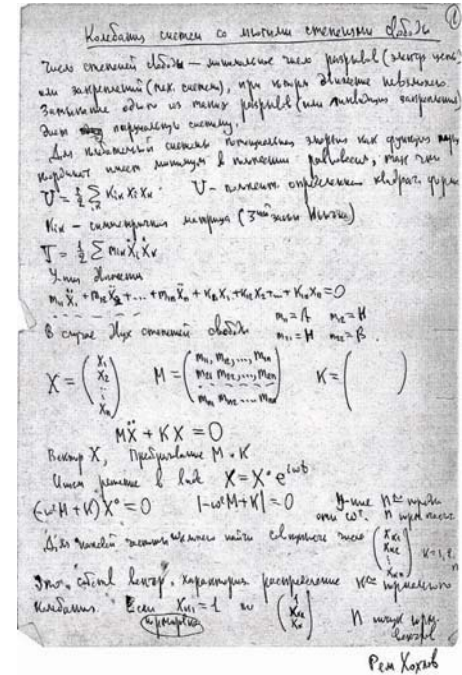 ①
Колебания систем со многими степенями свободы
Число степеней свободы — минимальное число разрывов (электр цепь)
или закреплений (мех. систем), при котором движение невозможно.
Замыкание одного из таких разрывов (или ликвидация закрепления)
дает парциальную систему.
Для колебательной системы потенциальная энергия как функция
координат имеет минимум в положении равновесия, так что
U = ½ Σ Kik xi xk . U - положит. определенная квадрат. форма
i,k
Kik — симметричная матрица (3ий закон Ньютона)
T = ½ Σ mik ẋi ẋk
Ур-ния движения
m11 ẍ1 + m12 ẍ2 + ... + m1n ẍn + K11 x1 + K12 x2 + ... + K1n xn = 0
В случае двух степеней свободы m11 = A m12 = H
m21 = H m22 = B .
X = (x1 x2 ⋮ xn) M = (m11, m12, ..., m1n m21 m22, ..., m2n mn1 mn2 ... mnn) K = ( )
MẌ + KX = 0
Вектор X, Преобразование M и K
Ищем решение в виде X = X° e^iωt
(-ω²M + K)X° = 0 |-ω²M + K| = 0 Ур-ние n порядка
отн ω². n корм частот
Для каждой частоты можно найти совокупность чисел (xk1 xk2 ⋮ xkn) k = 1, 2, n
Это собств вектор, характериз распределение k нормального
колебания. Если xk1 = 1 то (1 xk2 xk) n штук норм.
нормировка векторов
Рем Хохлов